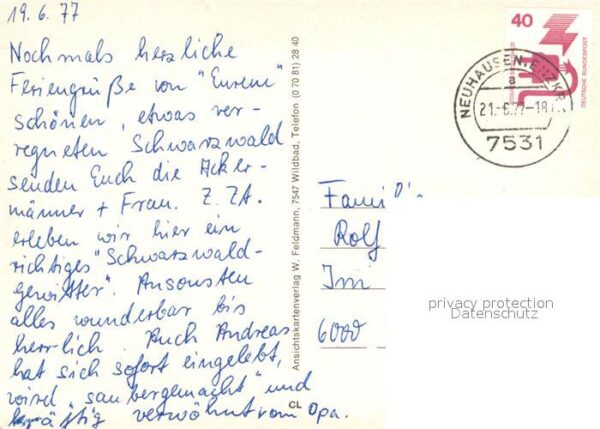 19.6.77
Nochmals herzliche
Feriengrüße von "Eurem"
schönen, etwas ver-
regneten Schwarzwald
senden Euch die Acker-
männer + Frau. Z. Zt.
erleben wir hier ein
richtiges "Schwarzwald-
gewitter". Ansonsten
alles wunderbar bis
herrlich. Auch Andreas
hat sich sofort eingelebt,
wird "saubergemacht" und
kräftig verwöhnt vom Opa.
Ansichtskartenverlag W. Feldmann, 7547 Wildbad, Telefon (0 70 81) 28 40
CL
40
DEUTSCHE BUNDESPOST
NEUHAUSEN, ENZKR
a
21.-6.77-18
7531
Rolf
6000
privacy protection
Datenschutz